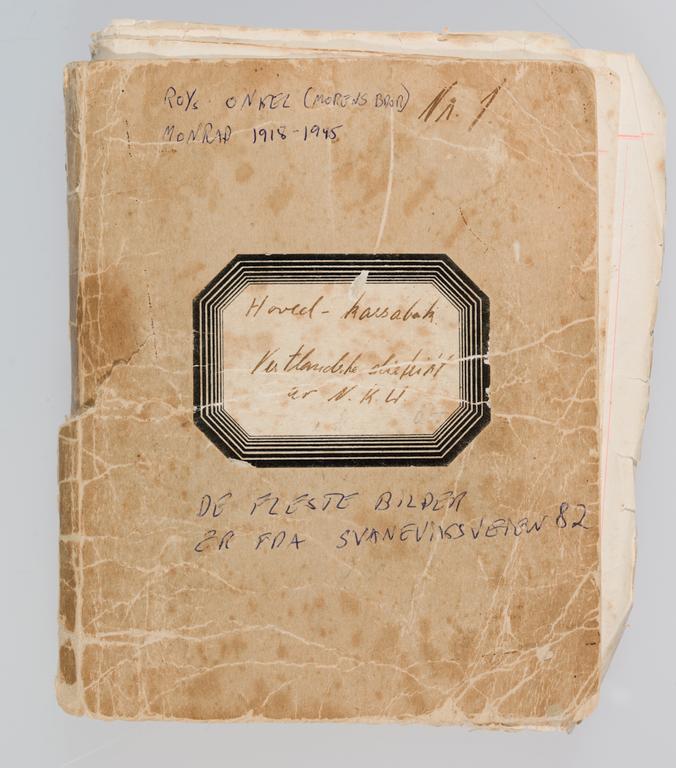 ROYs ONKEL (MORENS BROR) Nr. 1.
MONRAD 1918-1945
Hoved-kassabok
Vestlandske
av N.K.U
DE FLESTE BILDER
ER FRA SVANEVIKSVEIEN 82